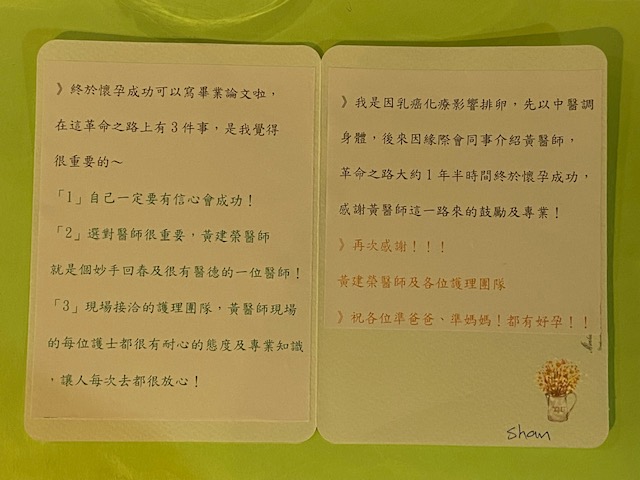 》終於懷孕成功可以寫畢業論文啦，
在這革命之路上有3件事，是我覺得
很重要的～
「1」自己一定要有信心會成功！
「2」選對醫師很重要，黃建榮醫師
就是個妙手回春及很有醫德的一位醫師！
「3」現場接洽的護理團隊，黃醫師現場
的每位護士都很有耐心的態度及專業知識
，讓人每次去都很放心！
》我是因乳癌化療影響排卵，先以中醫調
身體，後來因緣際會同事介紹黃醫師，
革命之路大約1年半時間終於懷孕成功，
感謝黃醫師這一路來的鼓勵及專業！
》再次感謝！！！
黃建榮醫師及各位護理團隊
》祝各位準爸爸、準媽媽！都有好孕！！
Shan